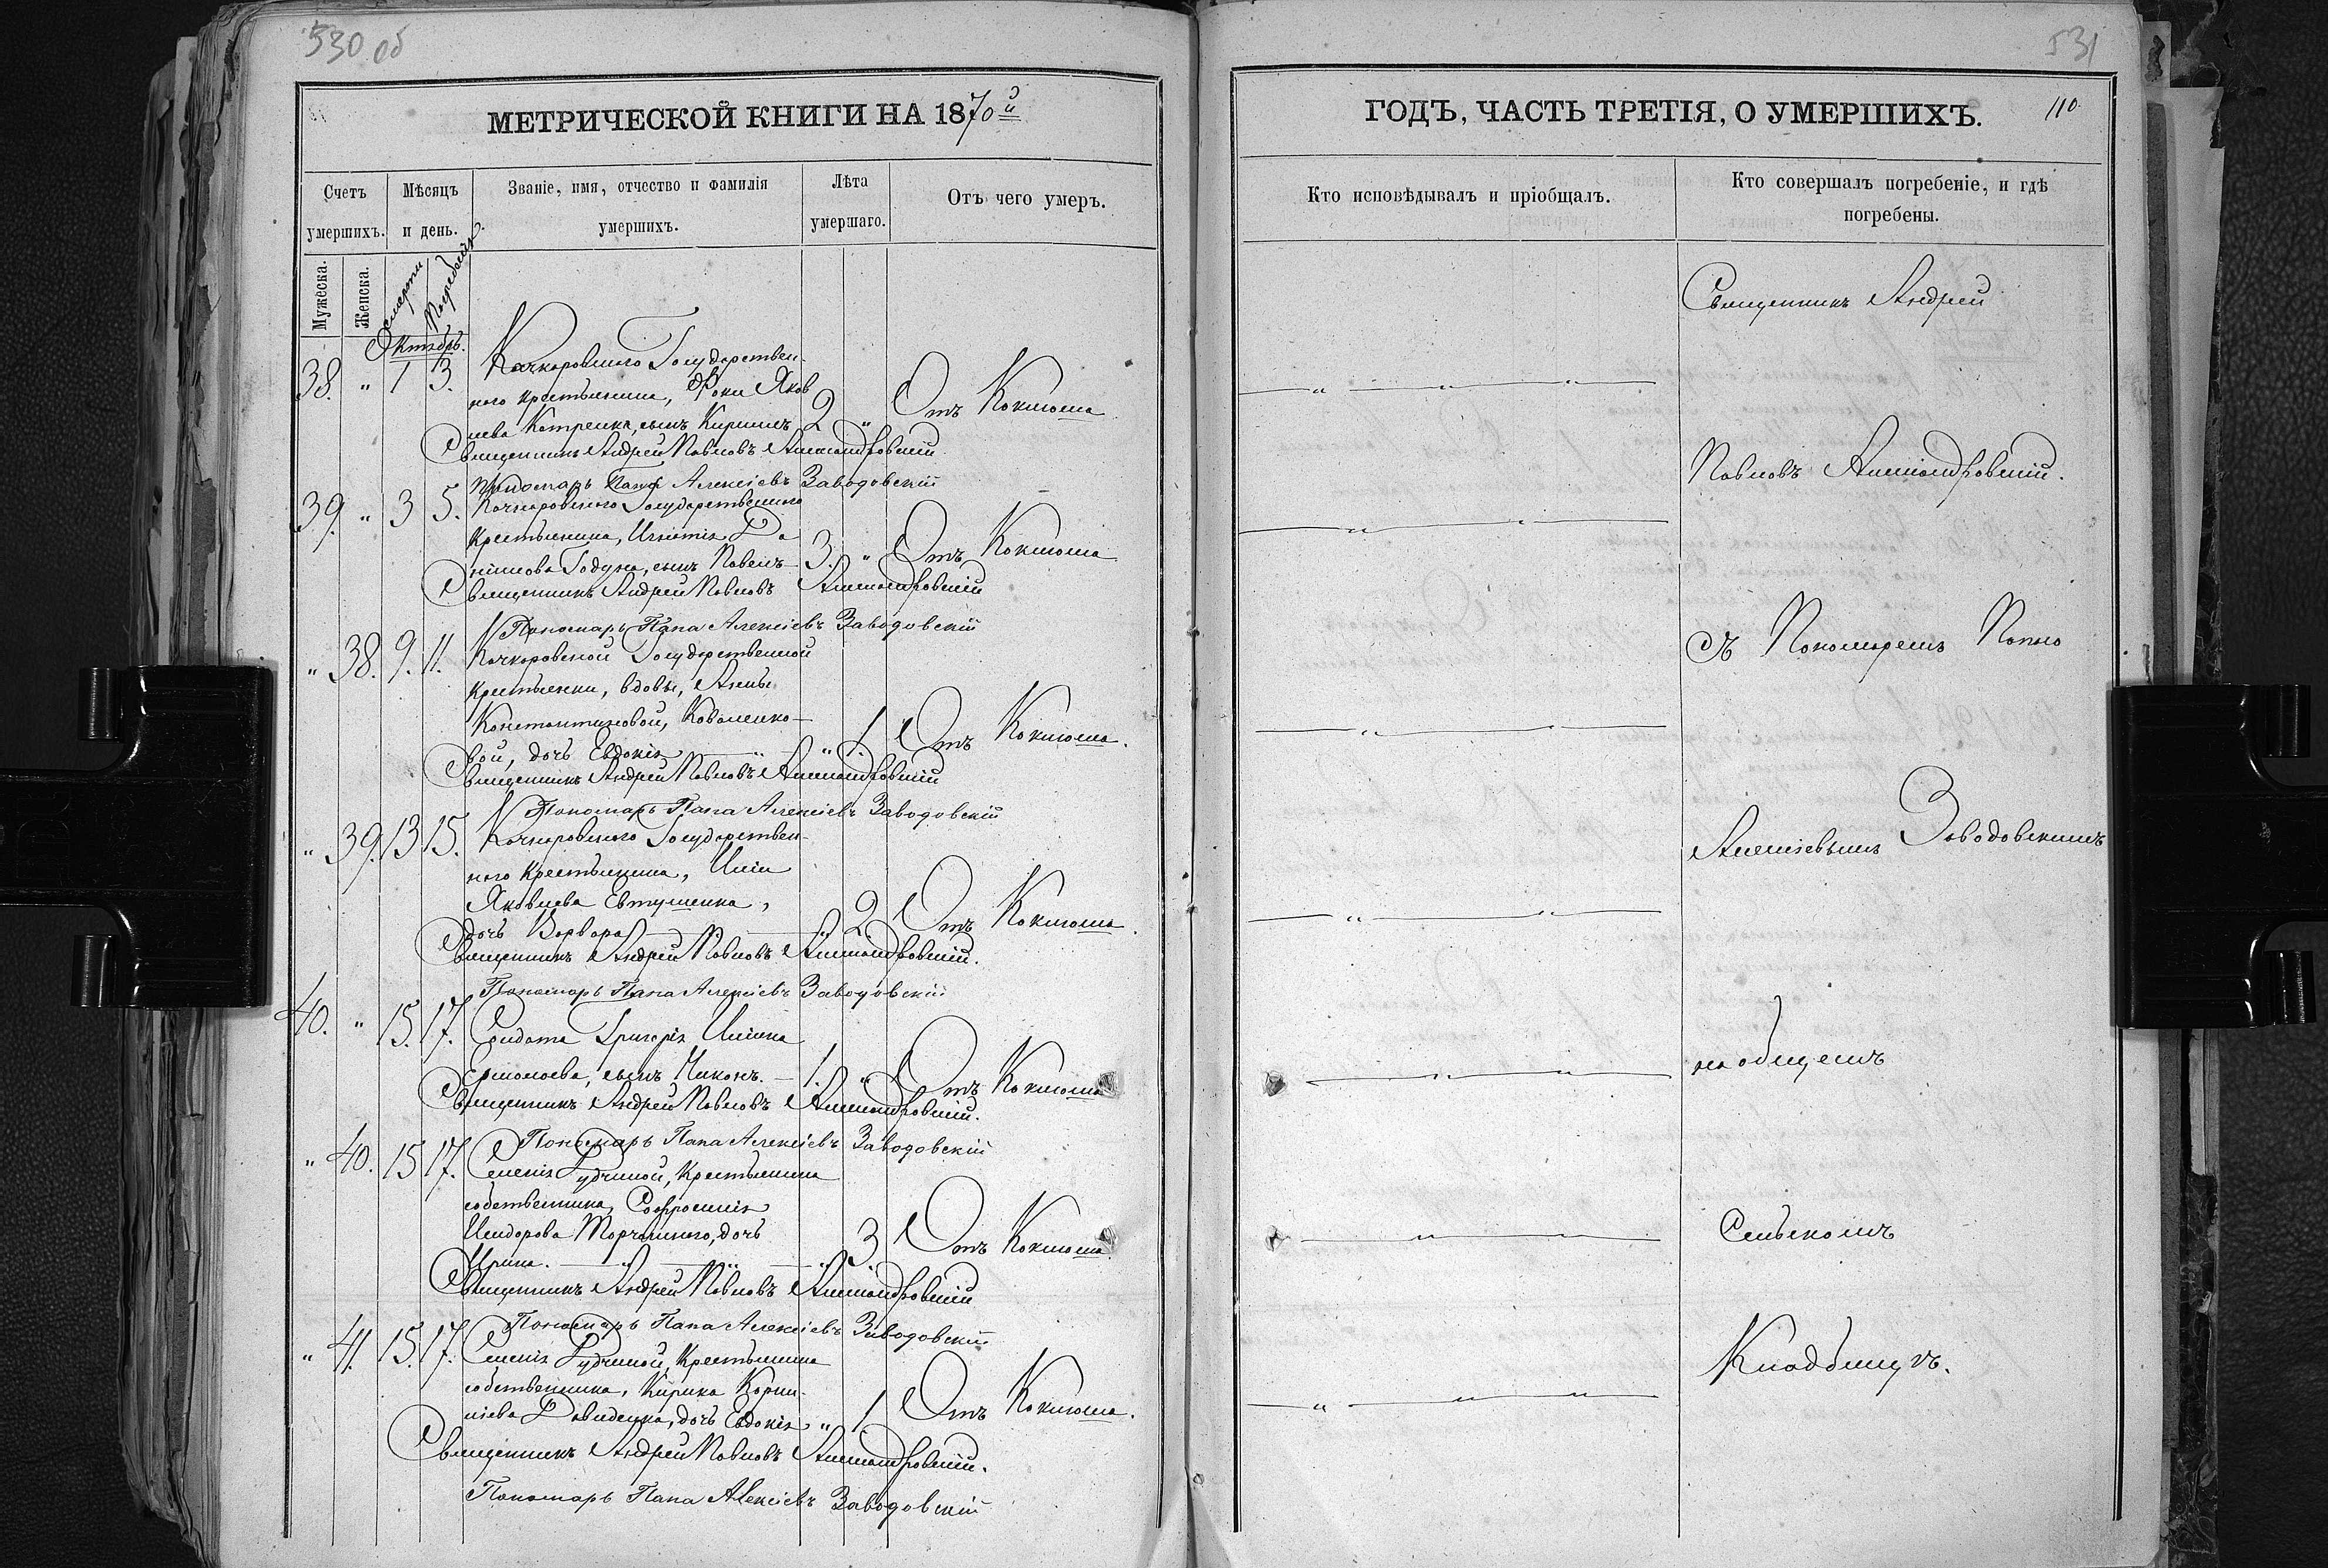 530 об
МЕТРИЧЕСКОЙ КНИГИ НА 1870й
Счетъ умершихъ.
Мѣсяцъ и день.
Званіе, имя, отчество и фамилія умершихъ.
Лѣта умершаго.
Отъ чего умеръ.
Мужеска.
Женска.
смерти
Погребенія
Октябрь.
38. " 1 3. Качкаровскаго Государствен-
наго крестьянина, Фоки Яков
лева Катренка, сынъ Кириллъ 2 " Отъ Коклюша
Священникъ Андрей Павловъ
Пономарь Папа Алексіевъ Заводовскій
39. " 3 5. Качкаровскаго Государственнаго
Крестьянина, Игнатія Да
нилова Годуна, сынъ Павелъ 3. " Отъ Коклюша
Священникъ Андрей Павловъ
Пономарь Папа Алексіевъ Заводовскій
" 38. 9. 11. Качкаровской Государственной
Крестьянки, вдовы, Анны
Константиновой, Коваленко-
вой, дочь Евдокія " 1. Отъ Коклюша.
Священникъ Андрей Павловъ
Пономарь Папа Алексіевъ Заводовскій
" 39. 13 15. Качкаровскаго Государствен-
наго Крестьянина, Иліи
Яковлева Евтушенка,
дочь Варвара " 2. Отъ Коклюша.
Священникъ Андрей Павловъ
Пономарь Папа Алексіевъ Заводовскій
40. " 15. 17. Солдата Григорія Ильина
Ермолаева, сынъ Никонъ. 1. " Отъ Коклюша
Священникъ Андрей Павловъ
Пономарь Папа Алексіевъ Заводовскій
" 40. 15 17. Селенія Рудчиной, Крестьянина
собственника, Софронія
Исидорова Торчинскаго, дочь
Ирина. " 3. Отъ Коклюша.
Священникъ Андрей Павловъ
Пономарь Папа Алексіевъ Заводовскій
" 41. 15. 17. Селенія Рудчиной, Крестьянина
собственника, Кирика Корни-
ліева Давиденка, дочь Евдокія " 1 Отъ Коклюша.
Священникъ Андрей Павловъ
Пономарь Папа Алексіевъ Заводовскій
531
ГОДЪ, ЧАСТЬ ТРЕТІЯ, О УМЕРШИХЪ.
110
Кто исповѣдывалъ и пріобщалъ.
Кто совершалъ погребеніе, и гдѣ погребены.
Священникъ Андрей
Павловъ
съ Пономаремъ Папою
Алексіевымъ Заводовскимъ
на общемъ
Сельскомъ
Кладбищѣ.